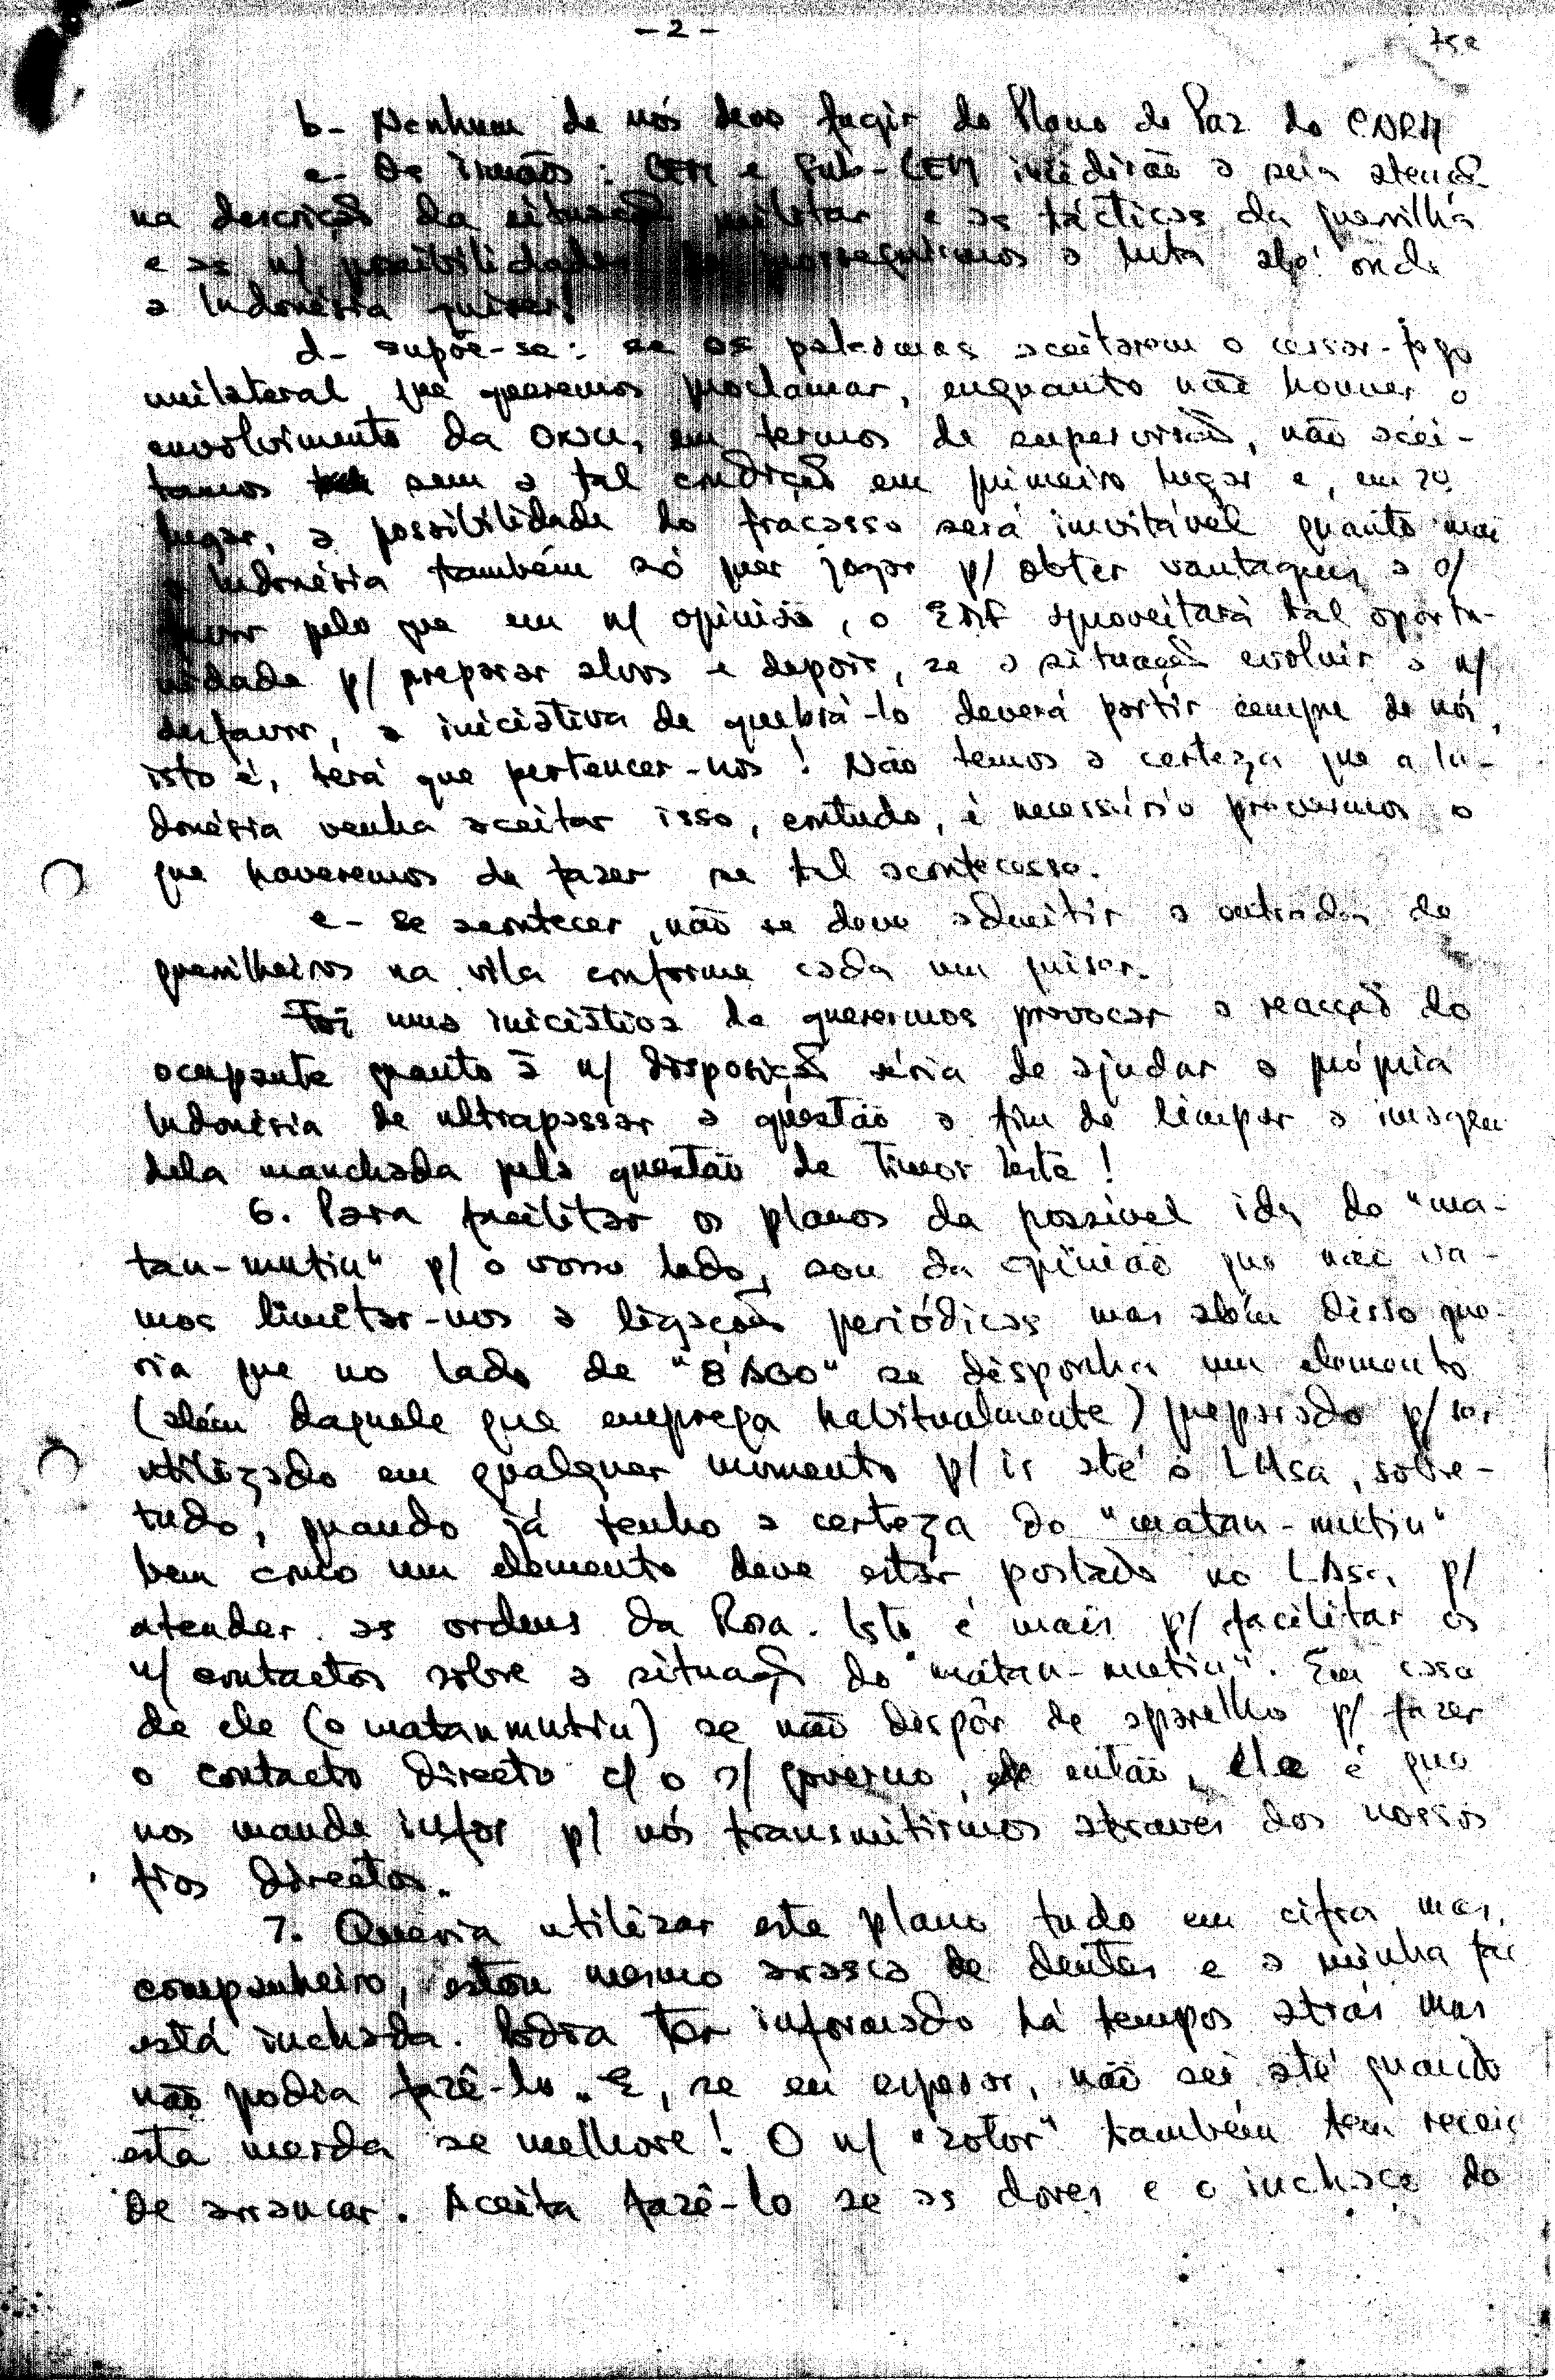 - 2 -
b- Nenhum de nós deve fugir do Plano de Paz do CNRM
c- Os irmãos: CEM e Sub-CEM incidirão a sua atenção
na descrição da situação militar e as tácticas da guerrilha
e as n/ possibilidades de prosseguirmos a luta até onde
a Indonésia quiser!
d- supõe-se: se os palermas aceitarem o cessar-fogo
unilateral que queremos proclamar, enquanto não houver o
envolvimento da ONU, em termos de supervisão, não acei-
tamos sem a tal condição em primeiro lugar e, em 2º
lugar, a possibilidade do fracasso será inevitável quanto mai
a Indonésia também só quer jogar p/ obter vantagens a s/
favor pelo que em n/ opinião, o EMF aproveitará tal oportu-
nidade p/ preparar alvos e depois, se a situação evoluir a n/
desfavor, a iniciativa de quebrá-lo deverá partir sempre de nós,
isto é, terá que pertencer-nos! Não temos a certeza que a In-
donésia venha aceitar isso, contudo, é necessário prevermos o
que haveremos de fazer se tal acontecesse.
e- Se acontecer, não se deve admitir a entrada de
guerrilheiros na vila conforme cada um quiser.
Foi uma iniciativa de querermos provocar a reacção do
ocupante quanto à n/ disposição séria de ajudar a própria
Indonésia de ultrapassar a questão a fim de limpar a imagem
dela manchada pela questão de Timor Leste!
6. Para facilitar os planos da possível ida do "ma-
tan-mutin" p/ o vosso lado, sou da opinião que não va-
mos limitar-nos a ligações periódicas mas além disso que-
ria que no lado de se disponha um elemento
(além daquele que emprega habitualmente) preparado p/ ser
utilizado em qualquer momento p/ ir até o sobre-
tudo, quando já tenho a certeza do "matan-mutin"
bem como um elemento deve estar postado no p/
atender as ordens da Rosa. Isto é mais p/ facilitar os
n/ contactos sobre a situação do "matan-mutin". Em caso
de ele (o matanmutin) se não dispôr de aparelho p/ fazer
o contacto directo c/ o s/ governo, então, ele é que
nos mande infor p/ nós transmitirmos através dos nossos
fios directos.
7. Queria utilizar este plano tudo em cifra mas,
companheiro, estou mesmo à rasca de dentes e a minha fac
está inchada. Podia ter informado há tempos atrás mas
não podia fazê-lo. E, se eu esperar, não sei até quando
esta merda se melhore! O n/ "sotor" também tem receio
de arrancar. Aceita fazê-lo se as dores e o inchaço do